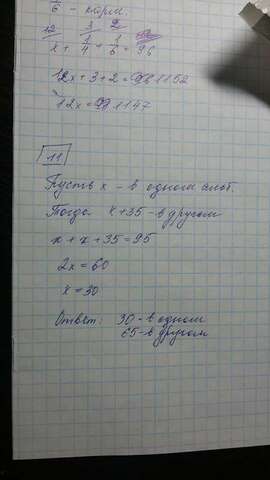 6 - стрм.
12 3 2
x + 1/4 + 1/6 = 96
12x + 3 + 2 = 1152
12x = 1147
11
Пусть x - в одном альб.
Тогда x+35 - в другом
x + x + 35 = 95
2x = 60
x = 30
Ответ: 30 - в одном
65 - в другом